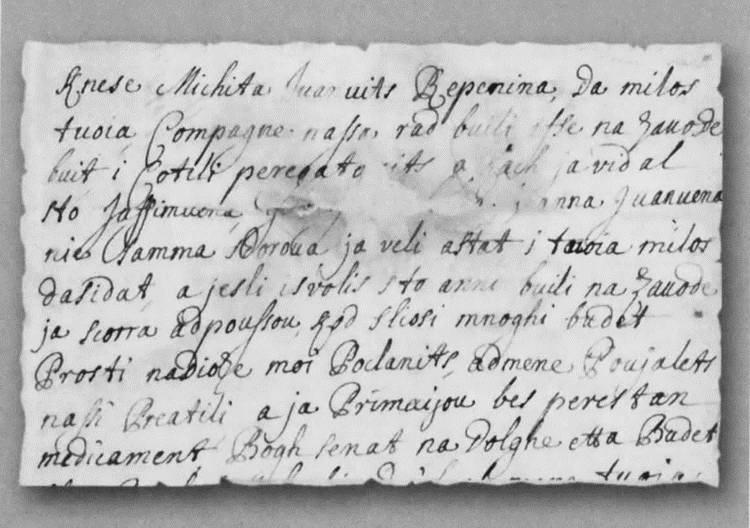 Knese Michita Juanvits Repenina, Da milos
tvoia Compagne nassa rad buili esse na Zavode
buit i Cotili peregato a ja vidal
sto Jaffimvena, anna Juanvena
nie Samma sdorova ja veli astat i tvoia milos
dasidat, a jesli isvolis sto anni buili na Zavode
ja scorra adpoussou, sliosi mnoghi budet
Prosti nadiože moi Poclanits, admene Poujalets
nassi Preatili a ja Primaijou bes perestan
medicament Bogh senat na Dolghe etta Budet